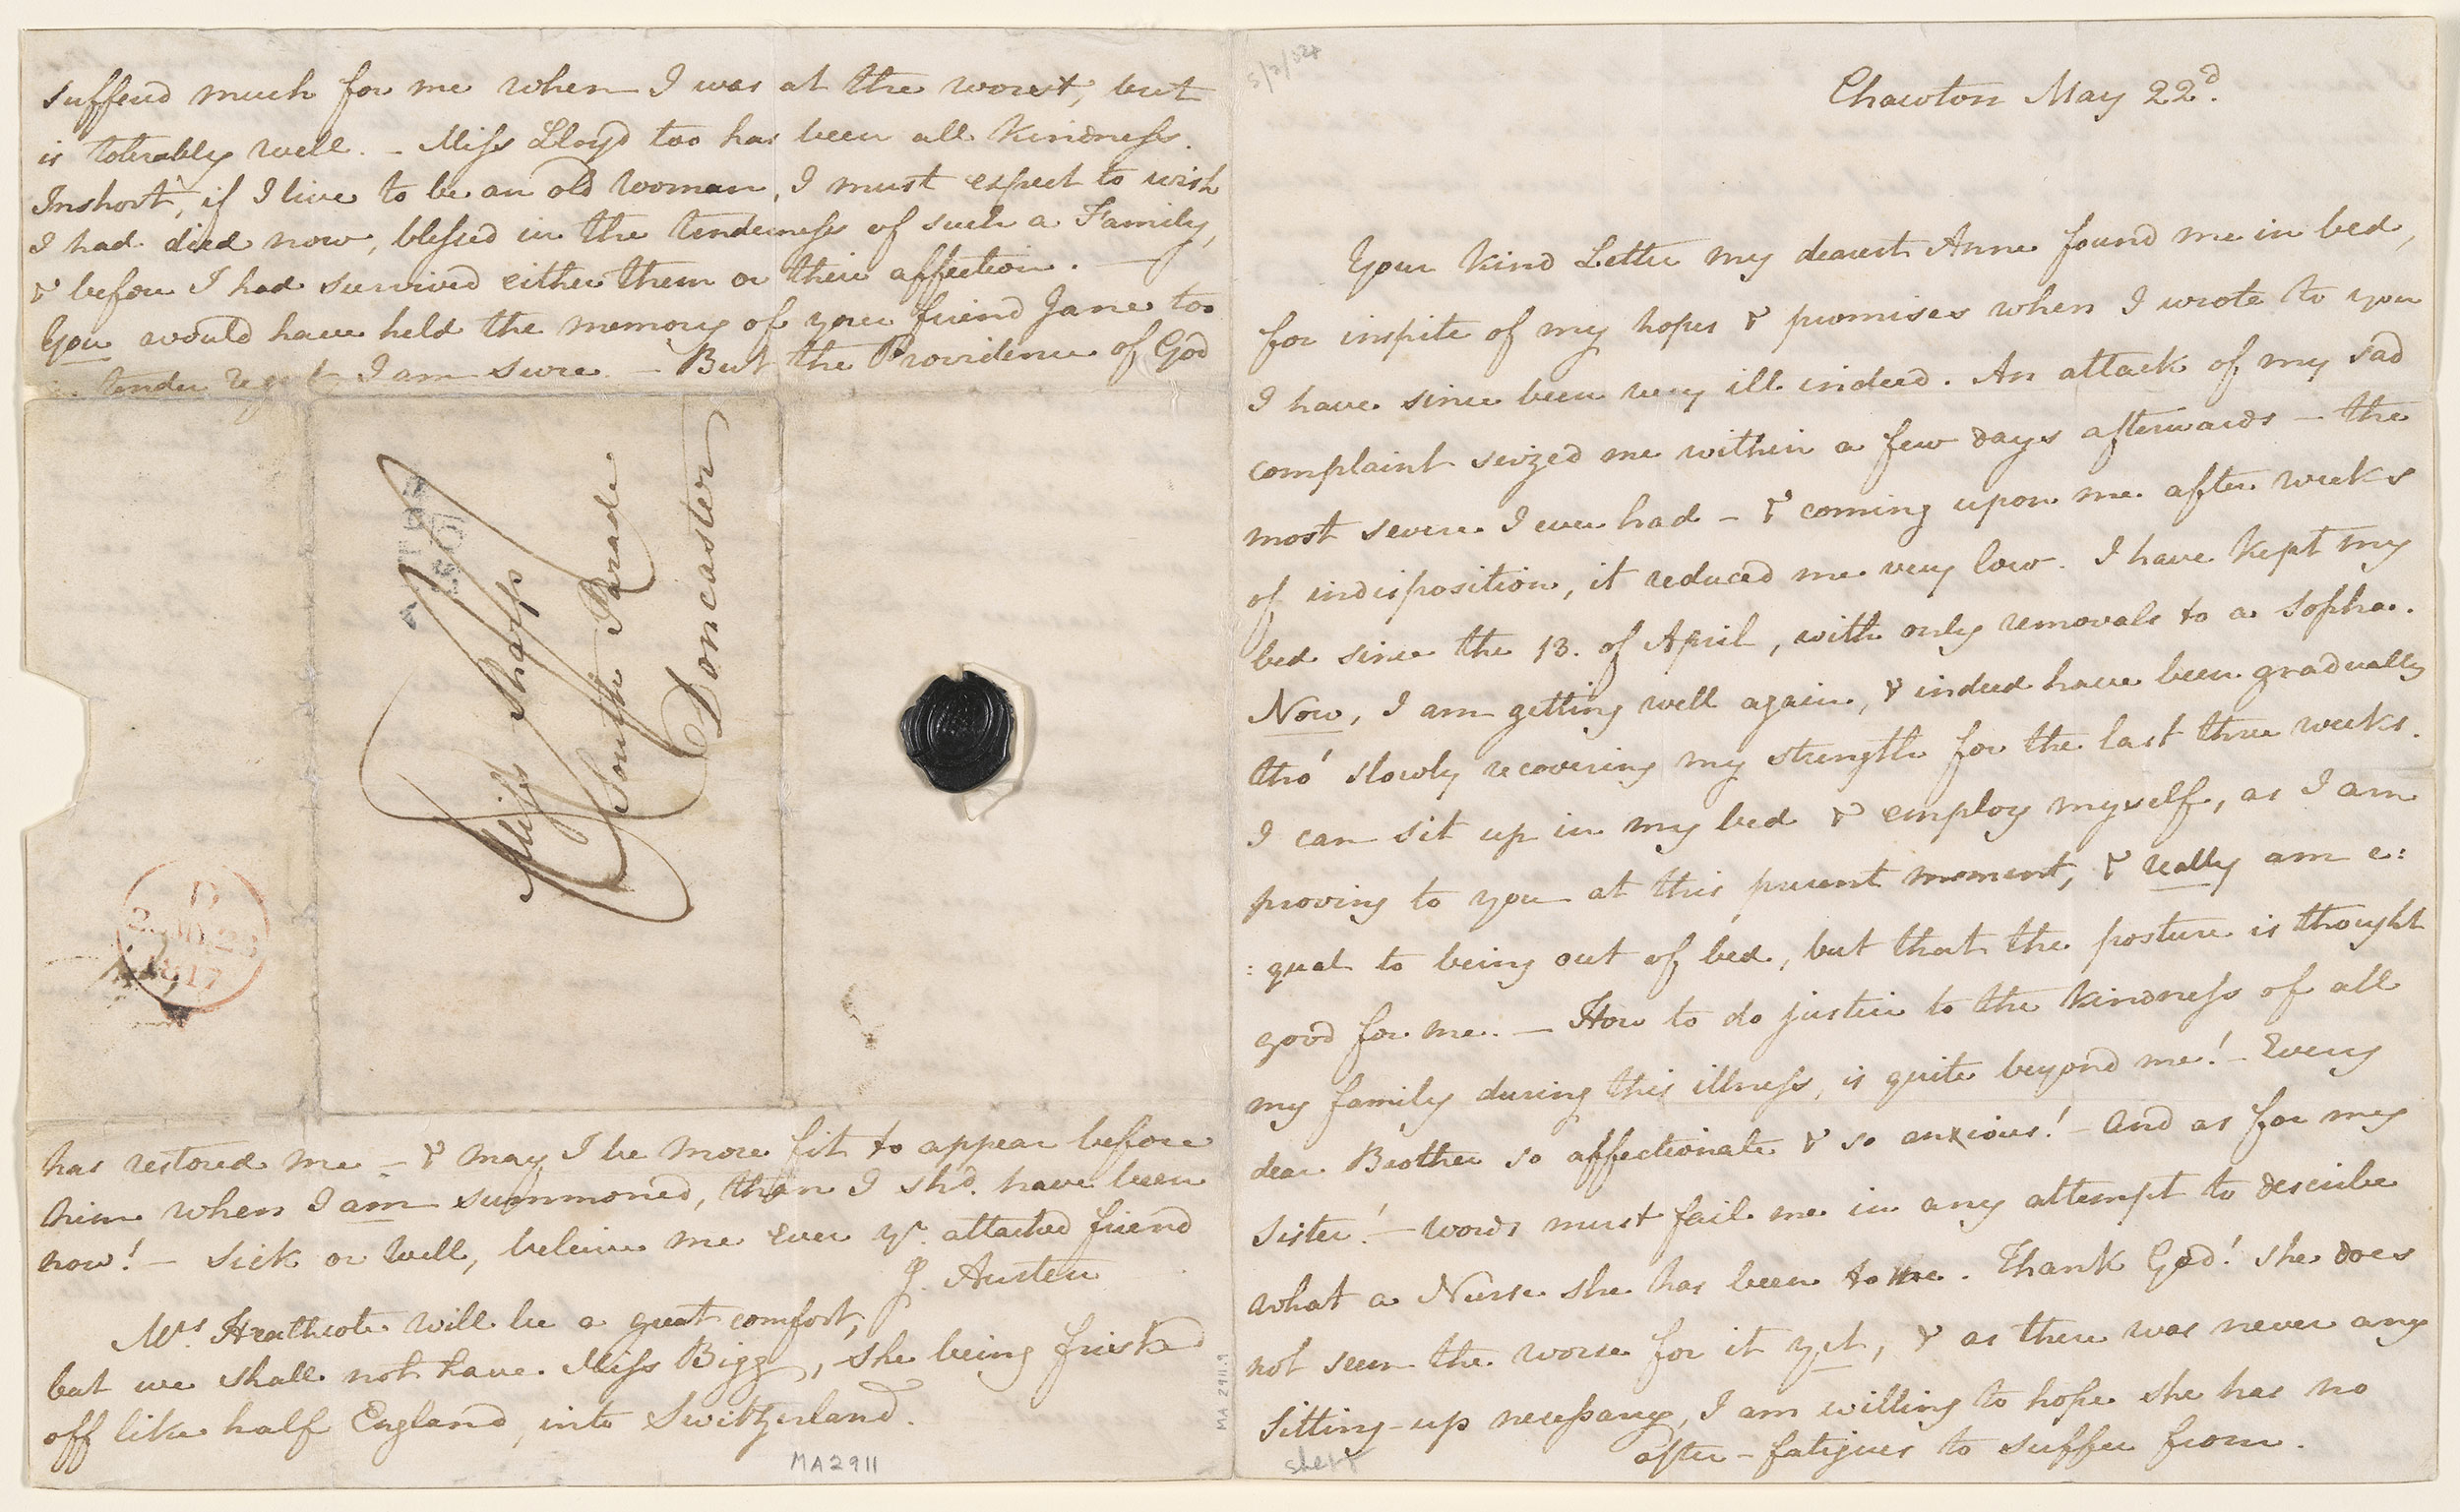 Chawton May 22d.
Your kind Letter my dearest Anne found me in bed,
for inspite of my hopes & promises when I wrote to you
I have since been very ill indeed. An attack of my sad
complaint seized me within a few days afterwards — the
most severe I ever had — & coming upon me after weeks
of indisposition, it reduced me very low. I have kept my
bed since the 13. of April, with only removals to a Sopha.
Now, I am getting well again, & indeed have been gradually
tho' slowly recovering my strength for the last three weeks.
I can sit up in my bed & employ myself, as I am
proving to you at this present moment, & really am e:
:qual to being out of bed, but that the posture is thought
good for me. — How to do justice to the kindness of all
my family during this illness, is quite beyond me! — Every
dear Brother so affectionate & so anxious! — And as for my
Sister! — Words must fail me in any attempt to describe
what a Nurse she has been to me. Thank God! she does
not seem the worse for it yet, & as there was never any
Sitting-up necessary, I am willing to hope she has no
after-fatigues to suffer from.
suffered much for me when I was at the worst, but
is tolerably well. — Miss Lloyd too has been all kindness.
Inshort, if I live to be an old Woman, I must expect to wish
I had died now, blessed in the tenderness of such a Family,
& before I had survived either them or their affection. —
You would have held the memory of your friend Jane too
tender regret I am sure. — But the Providence of God
Miss Sharp
South Parade
Doncaster
D
23 MY 23
1817
has restored me — & may I be more fit to appear before
him when I am summoned, than I shd. have been
now! — Sick or Well, beleive me ever yr. attached friend
J. Austen
Mrs. Heathcote will be a great comfort,
but we shall not have Miss Bigg, she being frisked
off like half England, into Switzerland.
MA 2911
MA 2911.9